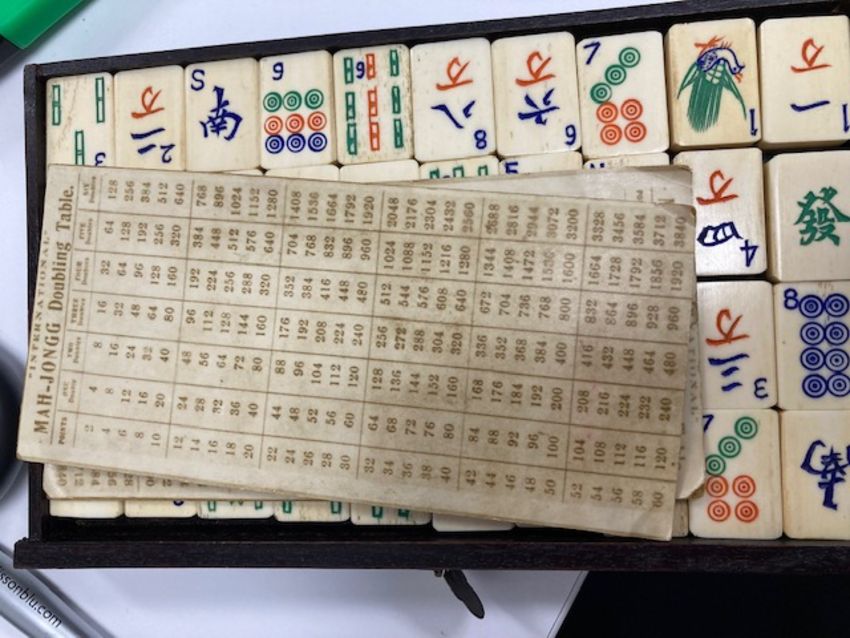 "INTERNATIONAL"
MAH-JONGG Doubling Table.
POINTS ONE Double TWO Doubles THREE Doubles FOUR Doubles FIVE Doubles SIX Doubles
2 4 8 16 32 64 128
4 8 16 32 64 128 256
6 12 24 48 96 192 384
8 16 32 64 128 256 512
10 20 40 80 160 320 640
12 24 48 96 192 384 768
14 28 56 112 224 448 896
16 32 64 128 256 512 1024
18 36 72 144 288 576 1152
20 40 80 160 320 640 1280
22 44 88 176 352 704 1408
24 48 96 192 384 768 1536
26 52 104 208 416 832 1664
28 56 112 224 448 896 1792
30 60 120 240 480 960 1920
32 64 128 256 512 1024 2048
34 68 136 272 544 1088 2176
36 72 144 288 576 1152 2304
38 76 152 304 608 1216 2432
40 80 160 320 640 1280 2560
42 84 168 336 672 1344 2688
44 88 176 352 704 1408 2816
46 92 184 368 736 1472 2944
48 96 192 384 768 1536 3072
50 100 200 400 800 1600 3200
52 104 208 416 832 1664 3328
54 108 216 432 864 1728 3456
56 112 224 448 896 1792 3584
58 116 232 464 928 1856 3712
60 120 240 480 960 1920 3840
3
二万 2
S 南
9
9
八万 8
六万 6
7
1
一万 1
5
N
四万 4
發
三万 3
8
7
ssonblu.com